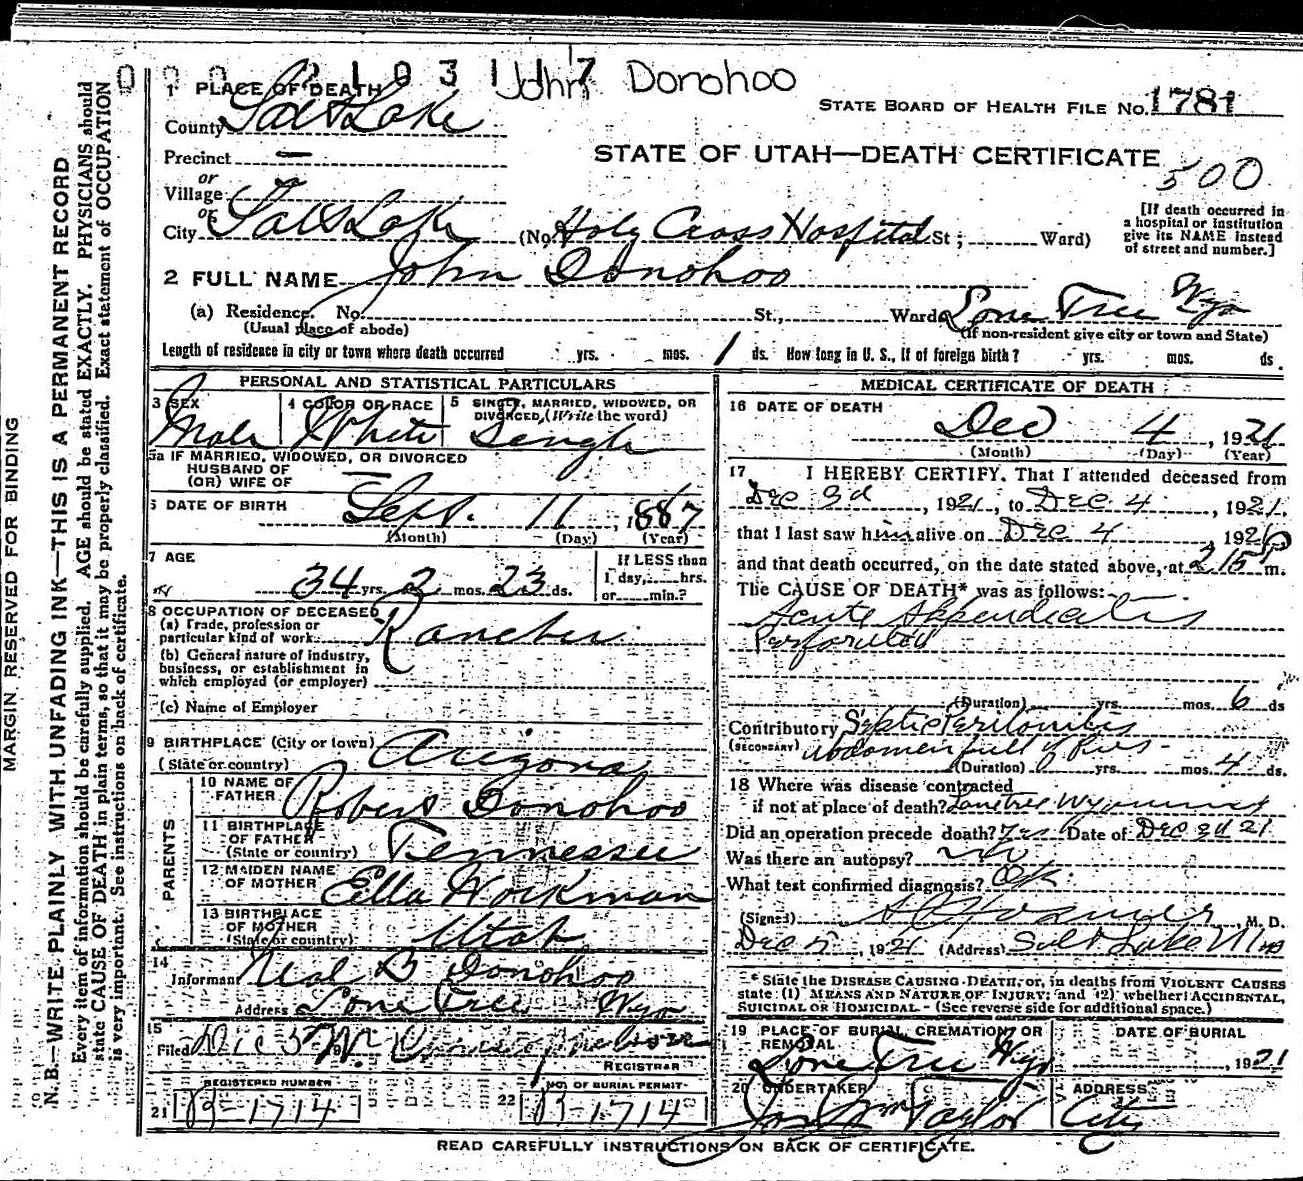 000 2103 117 John Donohoo
1 PLACE OF DEATH
STATE BOARD OF HEALTH FILE No. 1781
County Salt Lake
Precinct —
STATE OF UTAH—DEATH CERTIFICATE
500
or
Village
or
City Salt Lake (No. Holy Cross Hospital St; Ward)
[If death occurred in a hospital or institution give its NAME instead of street and number.]
2 FULL NAME John Donohoo
(a) Residence. No. St., Ward Lone Tree Wyo
(Usual place of abode) (If non-resident give city or town and State)
Length of residence in city or town where death occurred yrs. mos. 1 ds. How long in U. S., if of foreign birth? yrs. mos. ds.
PERSONAL AND STATISTICAL PARTICULARS
3 SEX 4 COLOR OR RACE 5 SINGLE, MARRIED, WIDOWED, OR DIVORCED, (Write the word)
Male White Single
5a IF MARRIED, WIDOWED, OR DIVORCED
HUSBAND OF
(OR) WIFE OF —
6 DATE OF BIRTH Sept. 11, 1887
(Month) (Day) (Year)
7 AGE If LESS than
34 yrs. 2 mos. 23 ds. 1 day, hrs.
or min.?
8 OCCUPATION OF DECEASED
(a) Trade, profession or
particular kind of work Rancher
(b) General nature of industry,
business, or establishment in
which employed (or employer)
(c) Name of Employer
9 BIRTHPLACE (City or town)
(State or country) Arizona
PARENTS
10 NAME OF
FATHER Robert Donohoo
11 BIRTHPLACE
OF FATHER
(State or country) Tennessee
12 MAIDEN NAME
OF MOTHER Ella Workman
13 BIRTHPLACE
OF MOTHER
(State or country) Utah
14
Informant Neal B Donohoo
Address Lone Tree Wyo
15
Filed Dec 5
REGISTRAR
REGISTERED NUMBER NO. OF BURIAL PERMIT
21 B-1714 22 B-1714
MEDICAL CERTIFICATE OF DEATH
16 DATE OF DEATH
Dec 4, 1921
(Month) (Day) (Year)
17 I HEREBY CERTIFY. That I attended deceased from
Dec 3d, 1921, to Dec. 4, 1921.
that I last saw him alive on Dec 4, 192
and that death occurred, on the date stated above, at 215 P m.
The CAUSE OF DEATH* was as follows:
Acute Appendicitis
Perforated
(Duration) yrs. mos. 6 ds
Contributory Septic Peritonitis
(SECONDARY) Abdomen full of Pus
(Duration) yrs. mos. 4 ds.
18 Where was disease contracted
if not at place of death? Lonetree Wyoming
Did an operation precede death? Yes Date of Dec 3d 21
Was there an autopsy? No
What test confirmed diagnosis?
(Signed) M. D.
Dec 5, 1921 (Address) Salt Lake
* State the DISEASE CAUSING DEATH, or, in deaths from VIOLENT CAUSES
state (1) MEANS AND NATURE OF INJURY; and (2) whether ACCIDENTAL,
SUICIDAL OR HOMICIDAL - (See reverse side for additional space.)
19 PLACE OF BURIAL, CREMATION, OR REMOVAL DATE OF BURIAL
Lone Tree Wyo, 1921
20 UNDERTAKER ADDRESS
Jos Wm Taylor City
READ CAREFULLY INSTRUCTIONS ON BACK OF CERTIFICATE.
MARGIN RESERVED FOR BINDING
N. B.—WRITE PLAINLY WITH UNFADING INK—THIS IS A PERMANENT RECORD
Every item of information should be carefully supplied. AGE should be stated EXACTLY. PHYSICIANS should
state CAUSE OF DEATH in plain terms, so that it may be properly classified. Exact statement of OCCUPATION
is very important. See instructions on back of certificate.